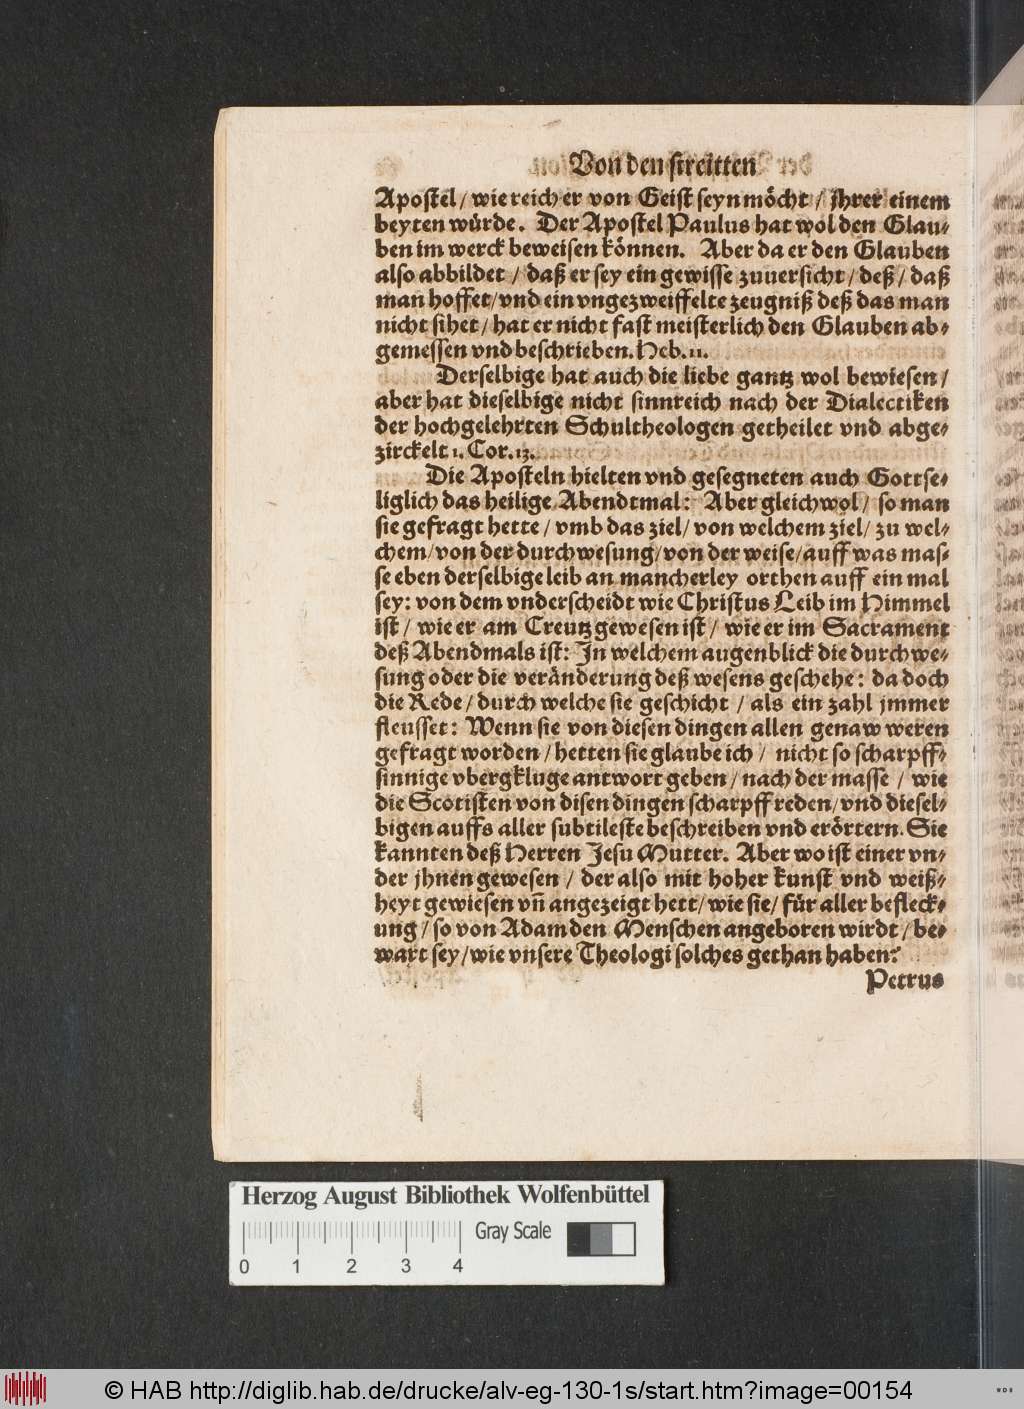 Von den streitten
Apostel / wie reich er von Geist seyn möcht / jhrer einem
beyten würde. Der Apostel Paulus hat wol den Glau-
ben im werck beweisen können. Aber da er den Glauben
also abbildet / daß er sey ein gewisse zuuersicht / deß / daß
man hoffet / vnd ein vngezweiffelte zeugniß deß das man
nicht sihet / hat er nicht fast meisterlich den Glauben ab-
gemessen vnd beschrieben. Heb. 11.
Derselbige hat auch die liebe gantz wol bewiesen /
aber hat dieselbige nicht sinnreich nach der Dialectiken
der hochgelehrten Schultheologen getheilet vnd abge-
zirckelt 1. Cor. 13.
Die Aposteln hielten vnd gesegneten auch Gottse-
liglich das heilige Abendtmal: Aber gleichwol / so man
sie gefragt hette / vmb das ziel / von welchem ziel / zu wel-
chem / von der durchwesung / von der weise / auff was mas-
se eben derselbige leib an mancherley orthen auff ein mal
sey: von dem vnderscheidt wie Christus Leib im Himmel
ist / wie er am Creutz gewesen ist / wie er im Sacrament
deß Abendmals ist: In welchem augenblick die durchwe-
sung oder die veränderung deß wesens geschehe: da doch
die Rede / durch welche sie geschicht / als ein zahl jmmer
fleusset: Wenn sie von diesen dingen allen genaw weren
gefragt worden / hetten sie glaube ich / nicht so scharpff-
sinnige vbergkluge antwort geben / nach der masse / wie
die Scotisten von disen dingen scharpff reden / vnd diesel-
bigen auffs aller subtileste beschreiben vnd erörtern. Sie
kannten deß Herren Jesu Mutter. Aber wo ist einer vn-
der jhnen gewesen / der also mit hoher kunst vnd weiß-
heyt gewiesen vn̄ angezeigt hett / wie sie / für aller befleck-
ung / so von Adam den Menschen angeboren wirdt / be-
wart sey / wie vnsere Theologi solches gethan haben?
Petrus
Herzog August Bibliothek Wolfenbüttel
Gray Scale
0 1 2 3 4
© HAB http://diglib.hab.de/drucke/alv-eg-130-1s/start.htm?image=00154